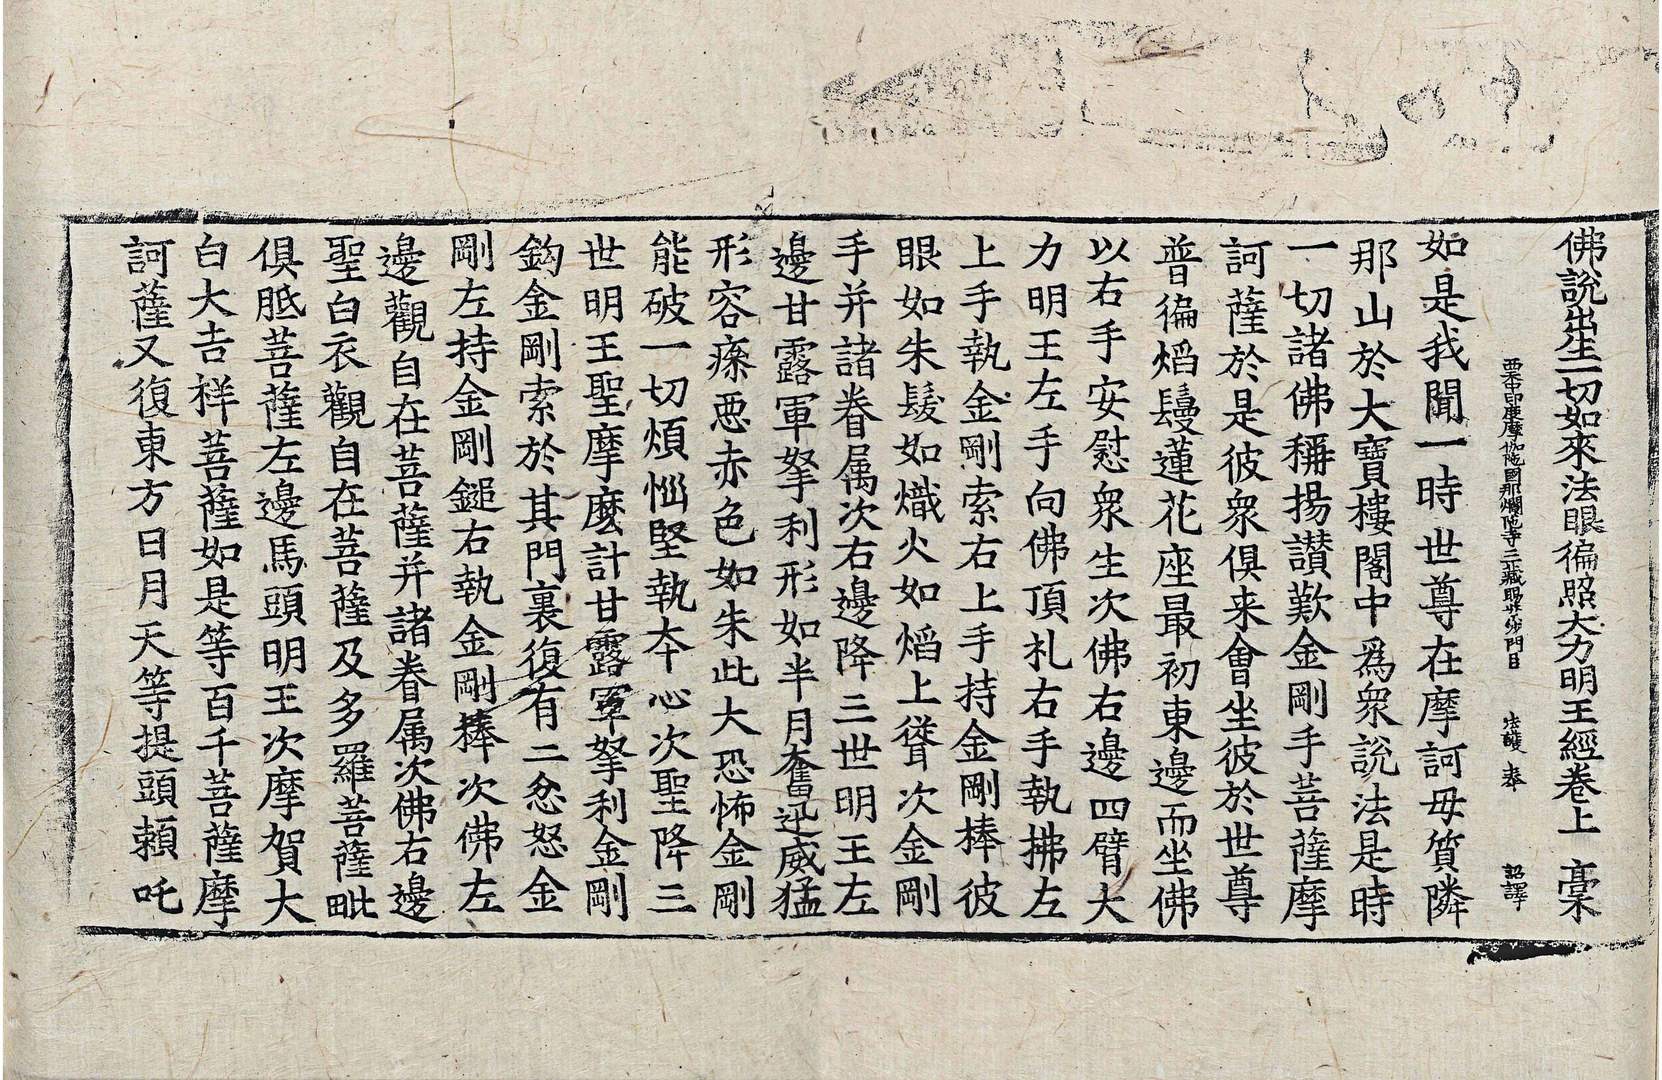 佛說出生一切如來法眼徧照大力明王經卷上 槀
西天中印度摩伽陀國那爛陀寺三藏賜紫沙門臣 法護 奉 詔譯
如是我聞一時世尊在摩訶母質隣
那山於大寶樓閣中爲衆說法是時
一切諸佛稱揚讃歎金剛手菩薩摩
訶薩於是彼衆俱来會坐彼於世尊
普徧熖鬘蓮花座最初東邊而坐佛
以右手安慰衆生次佛右邊四臂大
力明王左手向佛頂礼右手執拂左
上手執金剛索右上手持金剛棒彼
眼如朱髮如熾火如熖上聳次金剛
手并諸眷属次右邊降三世明王左
邊甘露軍拏利形如半月奮迅威猛
形容瘝惡赤色如朱此大恐怖金剛
能破一切煩惱堅執夲心次聖降三
世明王聖摩麼計甘露軍拏利金剛
鈎金剛索於其門裏復有二忿怒金
剛左持金剛鎚右執金剛棒次佛左
邊觀自在菩薩并諸眷属次佛右邊
聖白衣觀自在菩薩及多羅菩薩毗
俱胝菩薩左邊馬頭明王次摩賀大
白大吉祥菩薩如是等百千菩薩摩
訶薩又復東方日月天等提頭頼吒